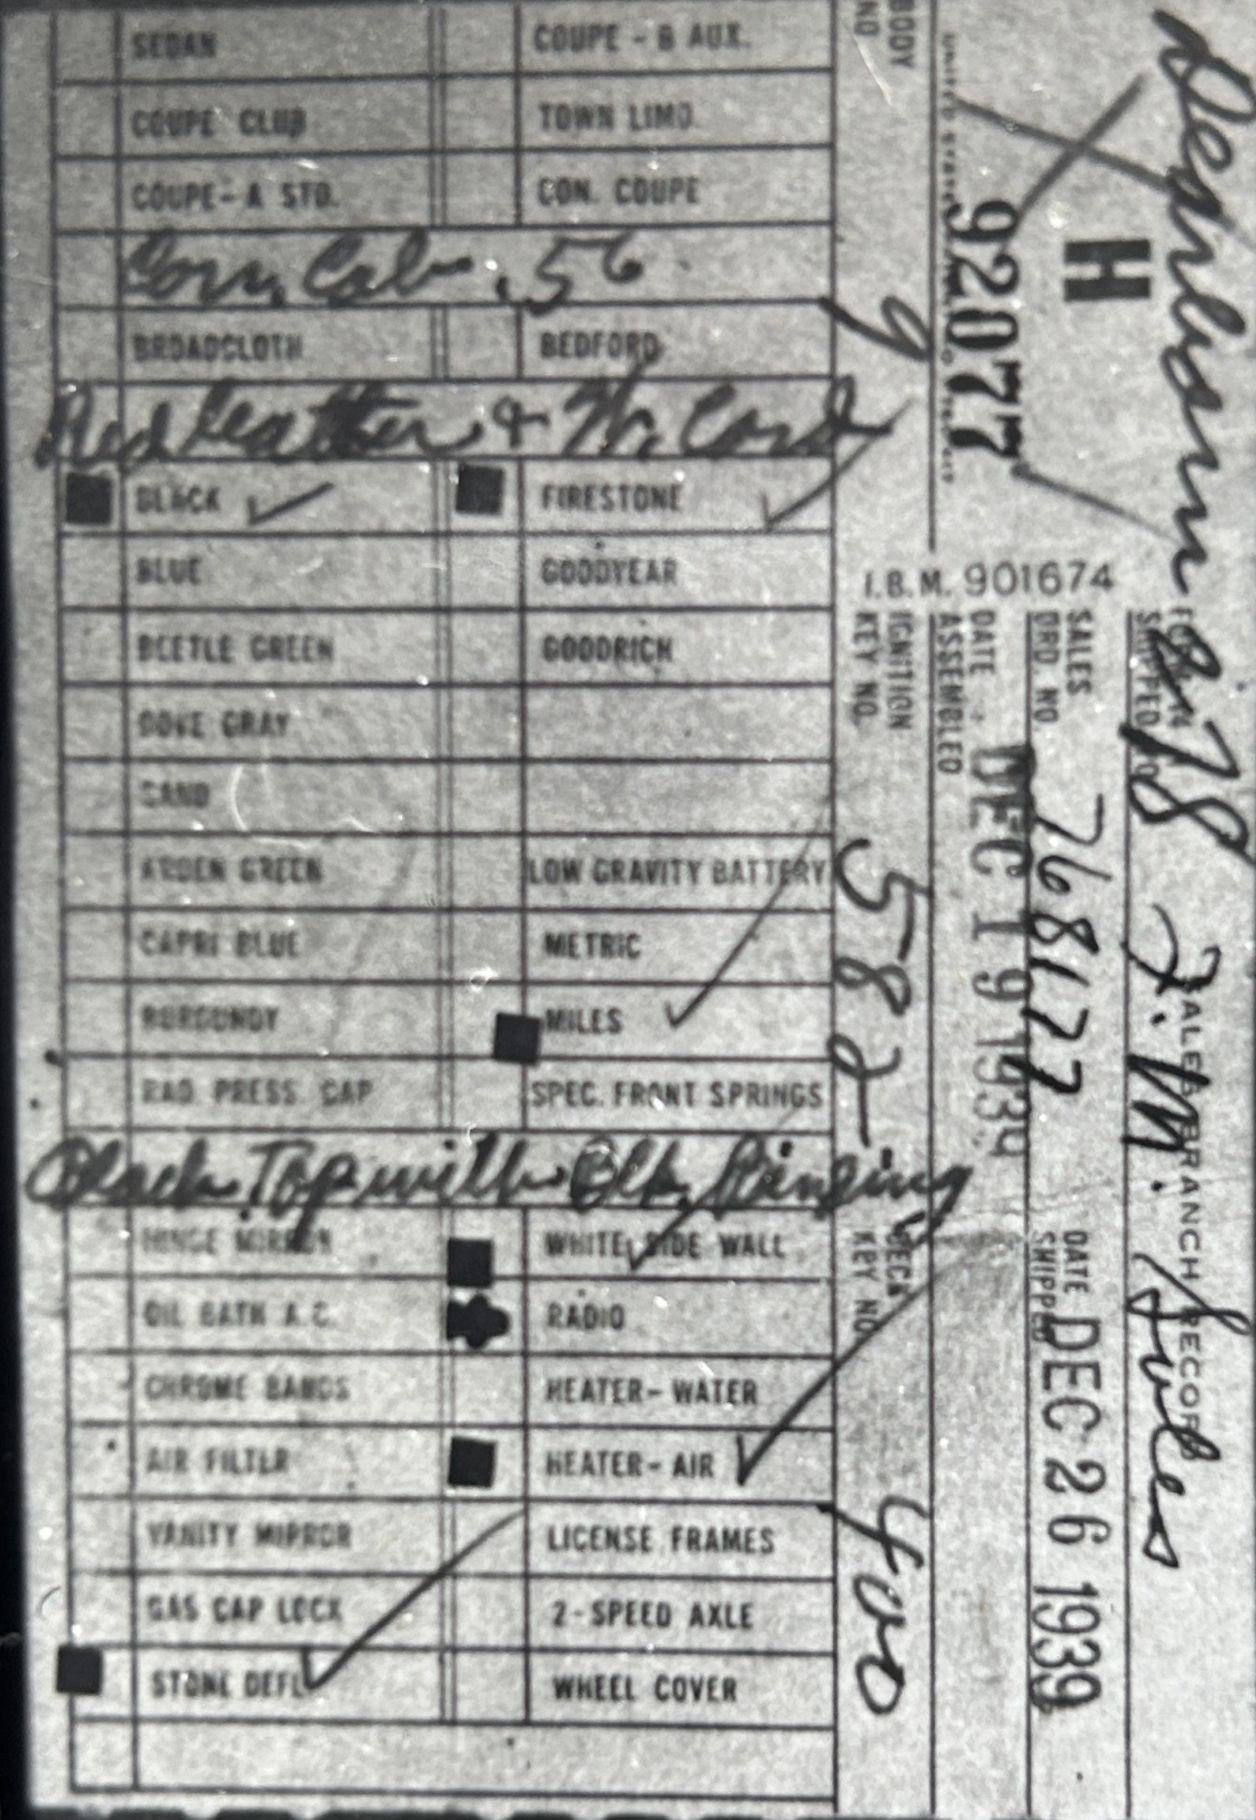 SEDAN
COUPE - B AUX.
COUPE CLUB
TOWN LIMO
COUPE- A STD.
CON. COUPE
Conv. Cab. 56
BROADCLOTH
BEDFORD
Red Leather & W. Cord
BLACK
FIRESTONE
BLUE
GOODYEAR
BEETLE GREEN
GOODRICH
DOVE GRAY
SAND
ARDEN GREEN
LOW GRAVITY BATTERY
CAPRI BLUE
METRIC
BURGUNDY
MILES
RAD. PRESS. CAP
SPEC. FRONT SPRINGS
Black Top with Blk. Binding
HINGE MIRROR
WHITE SIDE WALL
OIL BATH A.C.
RADIO
CHROME BANDS
HEATER-WATER
AIR FILTER
HEATER-AIR
VANITY MIRROR
LICENSE FRAMES
GAS CAP LOCK
2-SPEED AXLE
STONE DEFL
WHEEL COVER
BODY
NO
9
I.B.M. 901674
IGNITION
KEY NO.
582
DECK
KEY NO.
400
H
92077
DATE
ASSEMBLED
DEC 19 1939
SALES
ORD. NO
768177
DATE
SHIPPED
DEC 26 1939
Dearborn
SHIPPED TO
8178
F. M. Sules
SALES BRANCH RECORD